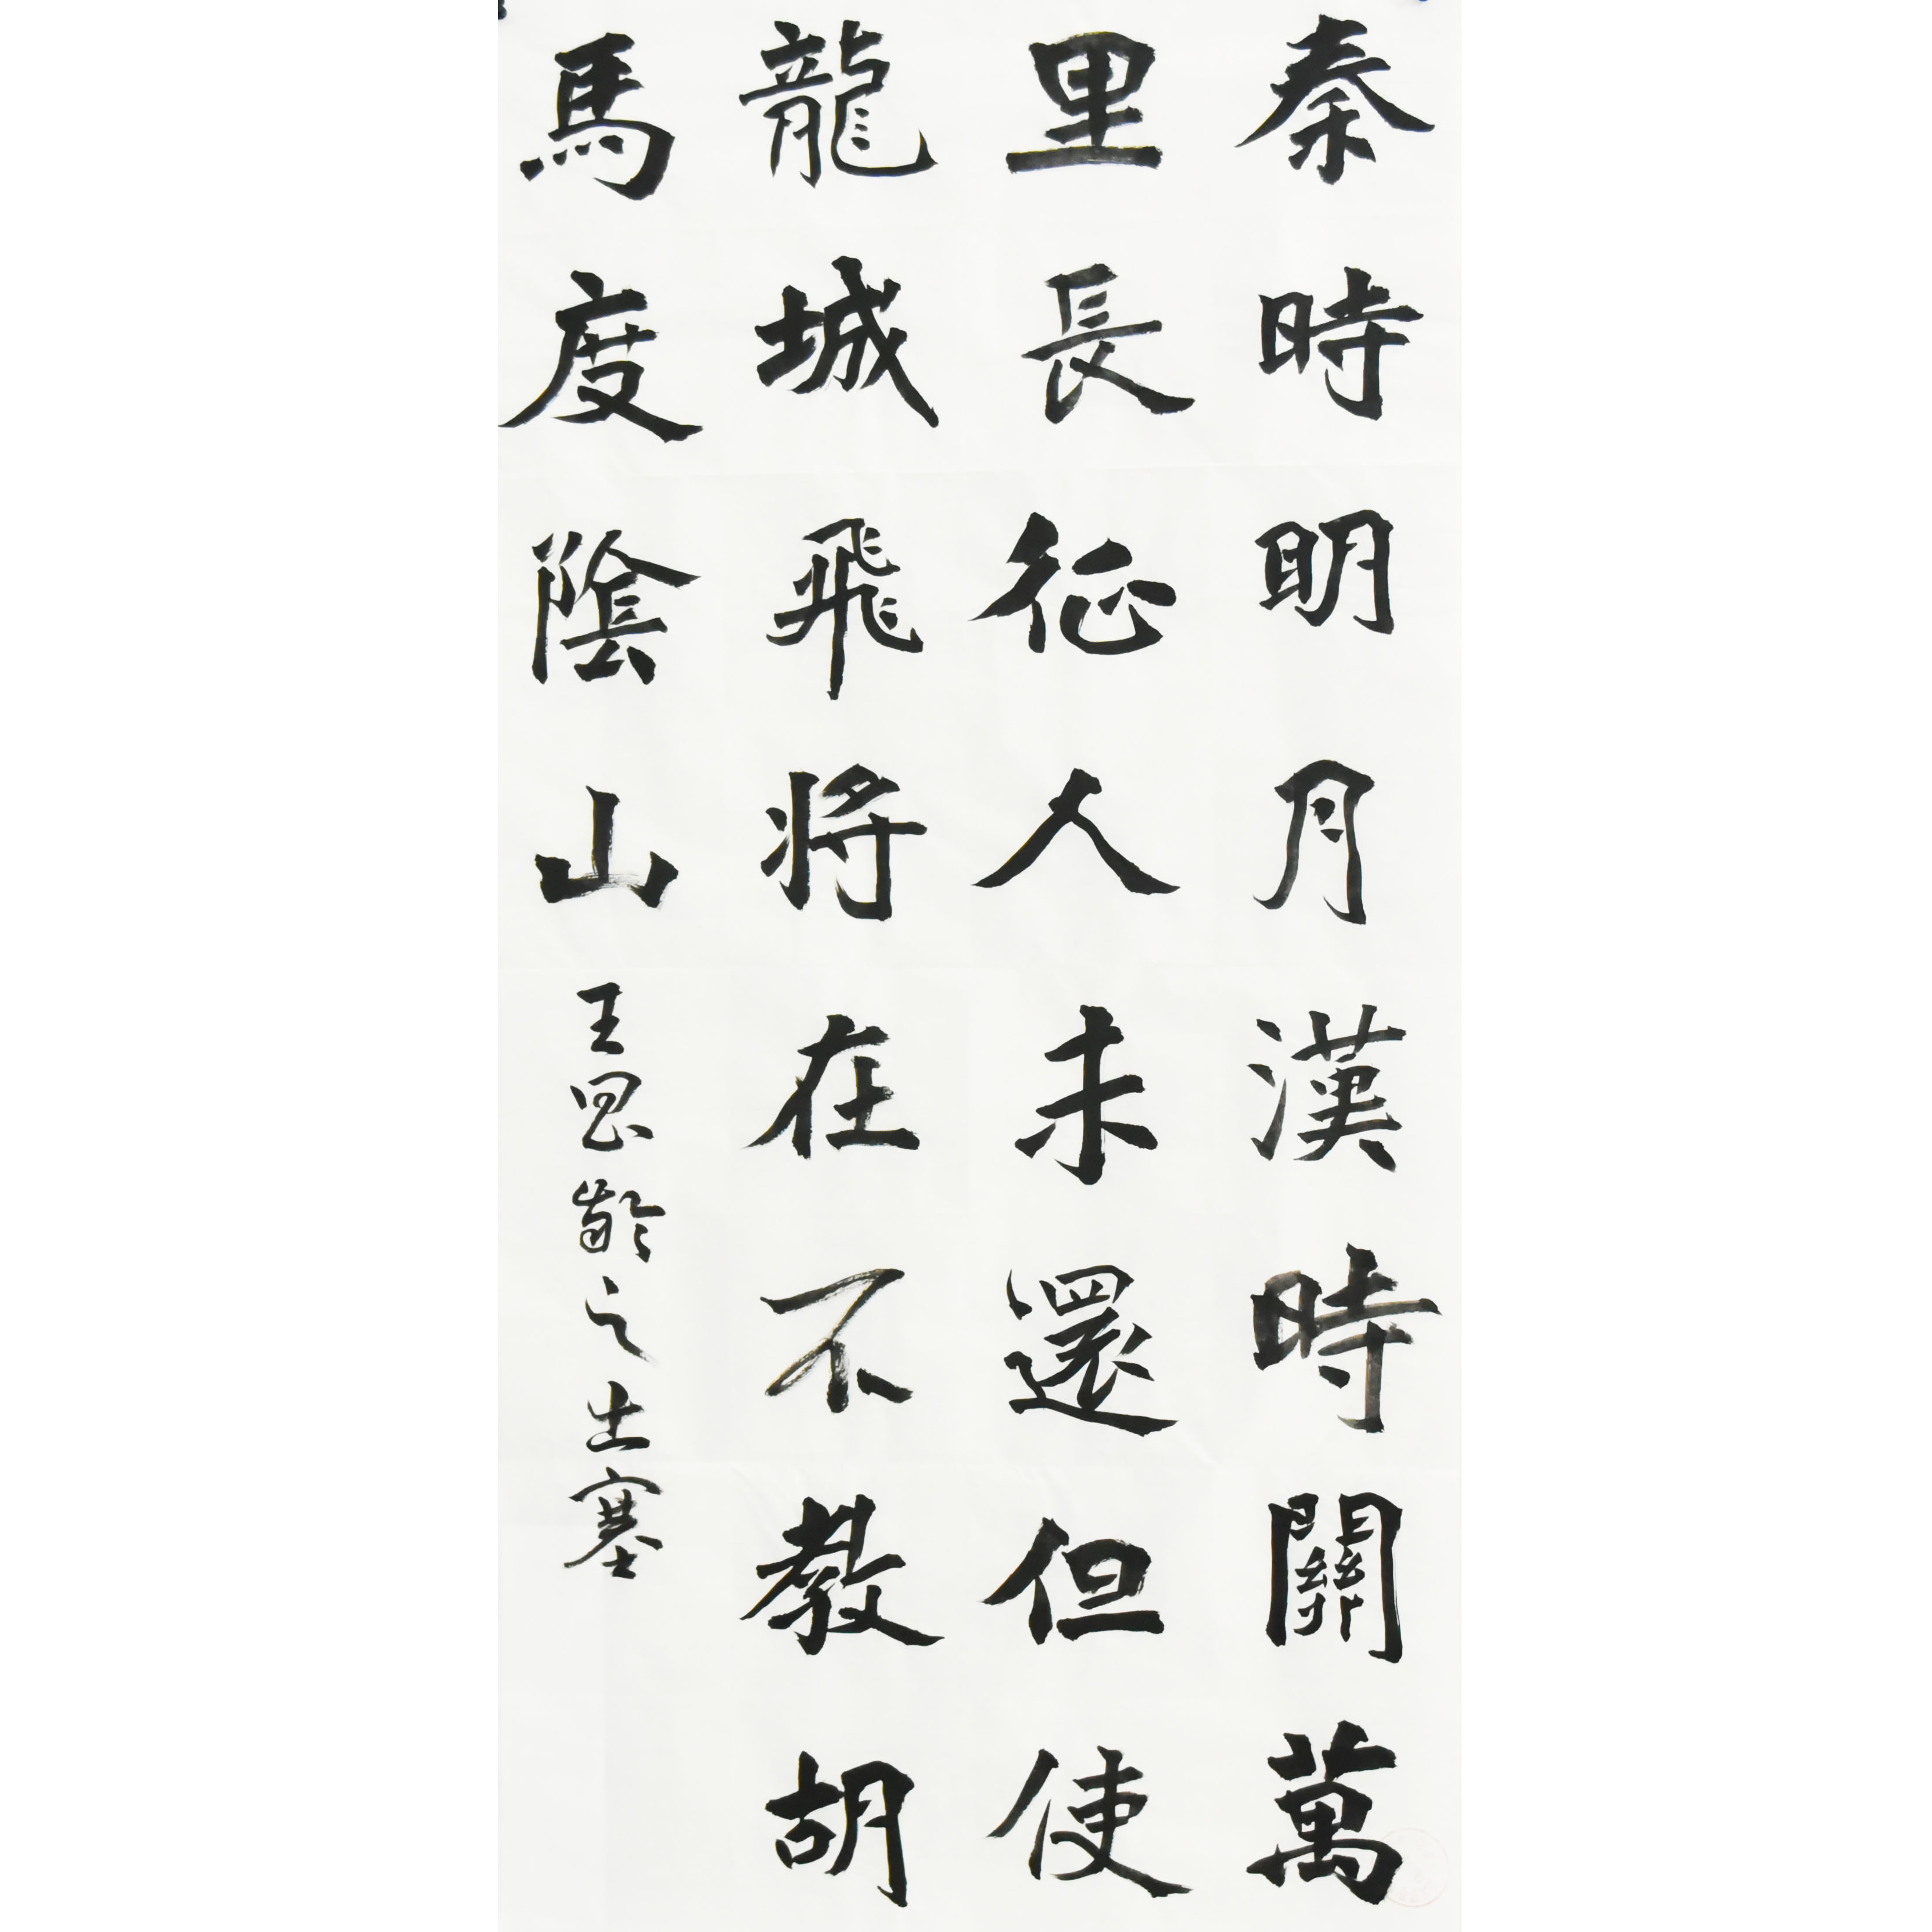 秦時明月漢時關萬
里長征人未還但使
龍城飛將在不教胡
馬度陰山
王昌齡之出塞